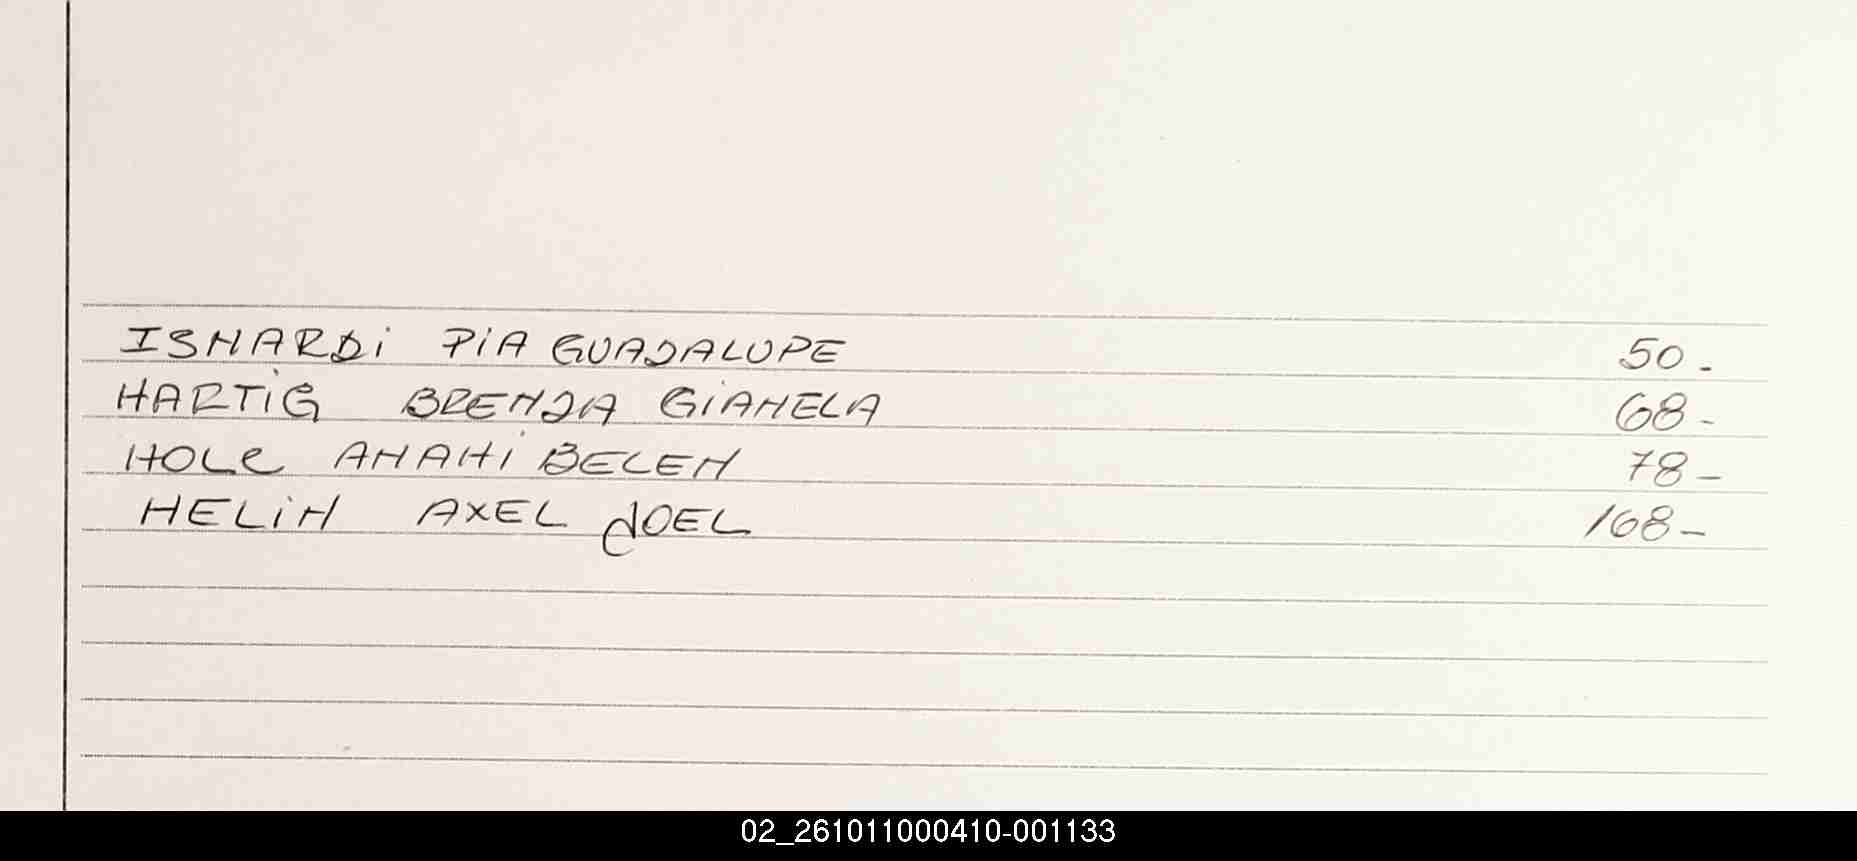 ISNARDI PIA GUADALUPE 50.-
HARTIG BRENDA GIANELA 68-
HOLC ANAHI BELEN 78-
HELIN AXEL JOEL 168-
02_261011000410-001133